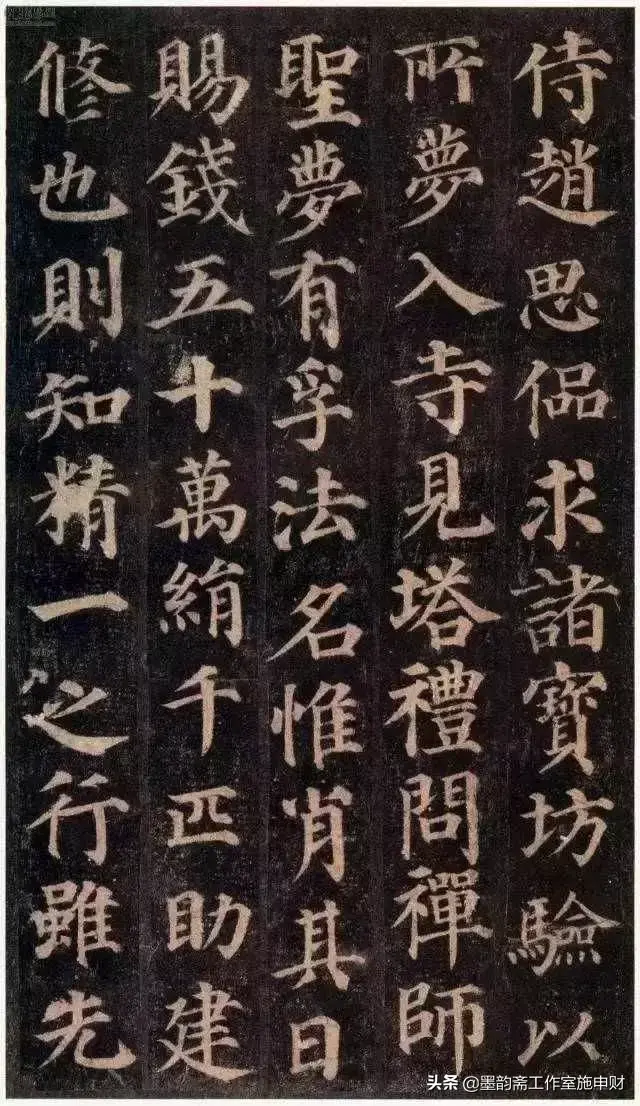 侍趙思偘求諸寶坊驗以
所夢入寺見塔禮問禪師
聖夢有孚法名惟肖其日
賜錢五十萬絹千匹助建
修也則知精一之行雖先
头条 @墨韵斋工作室施申财